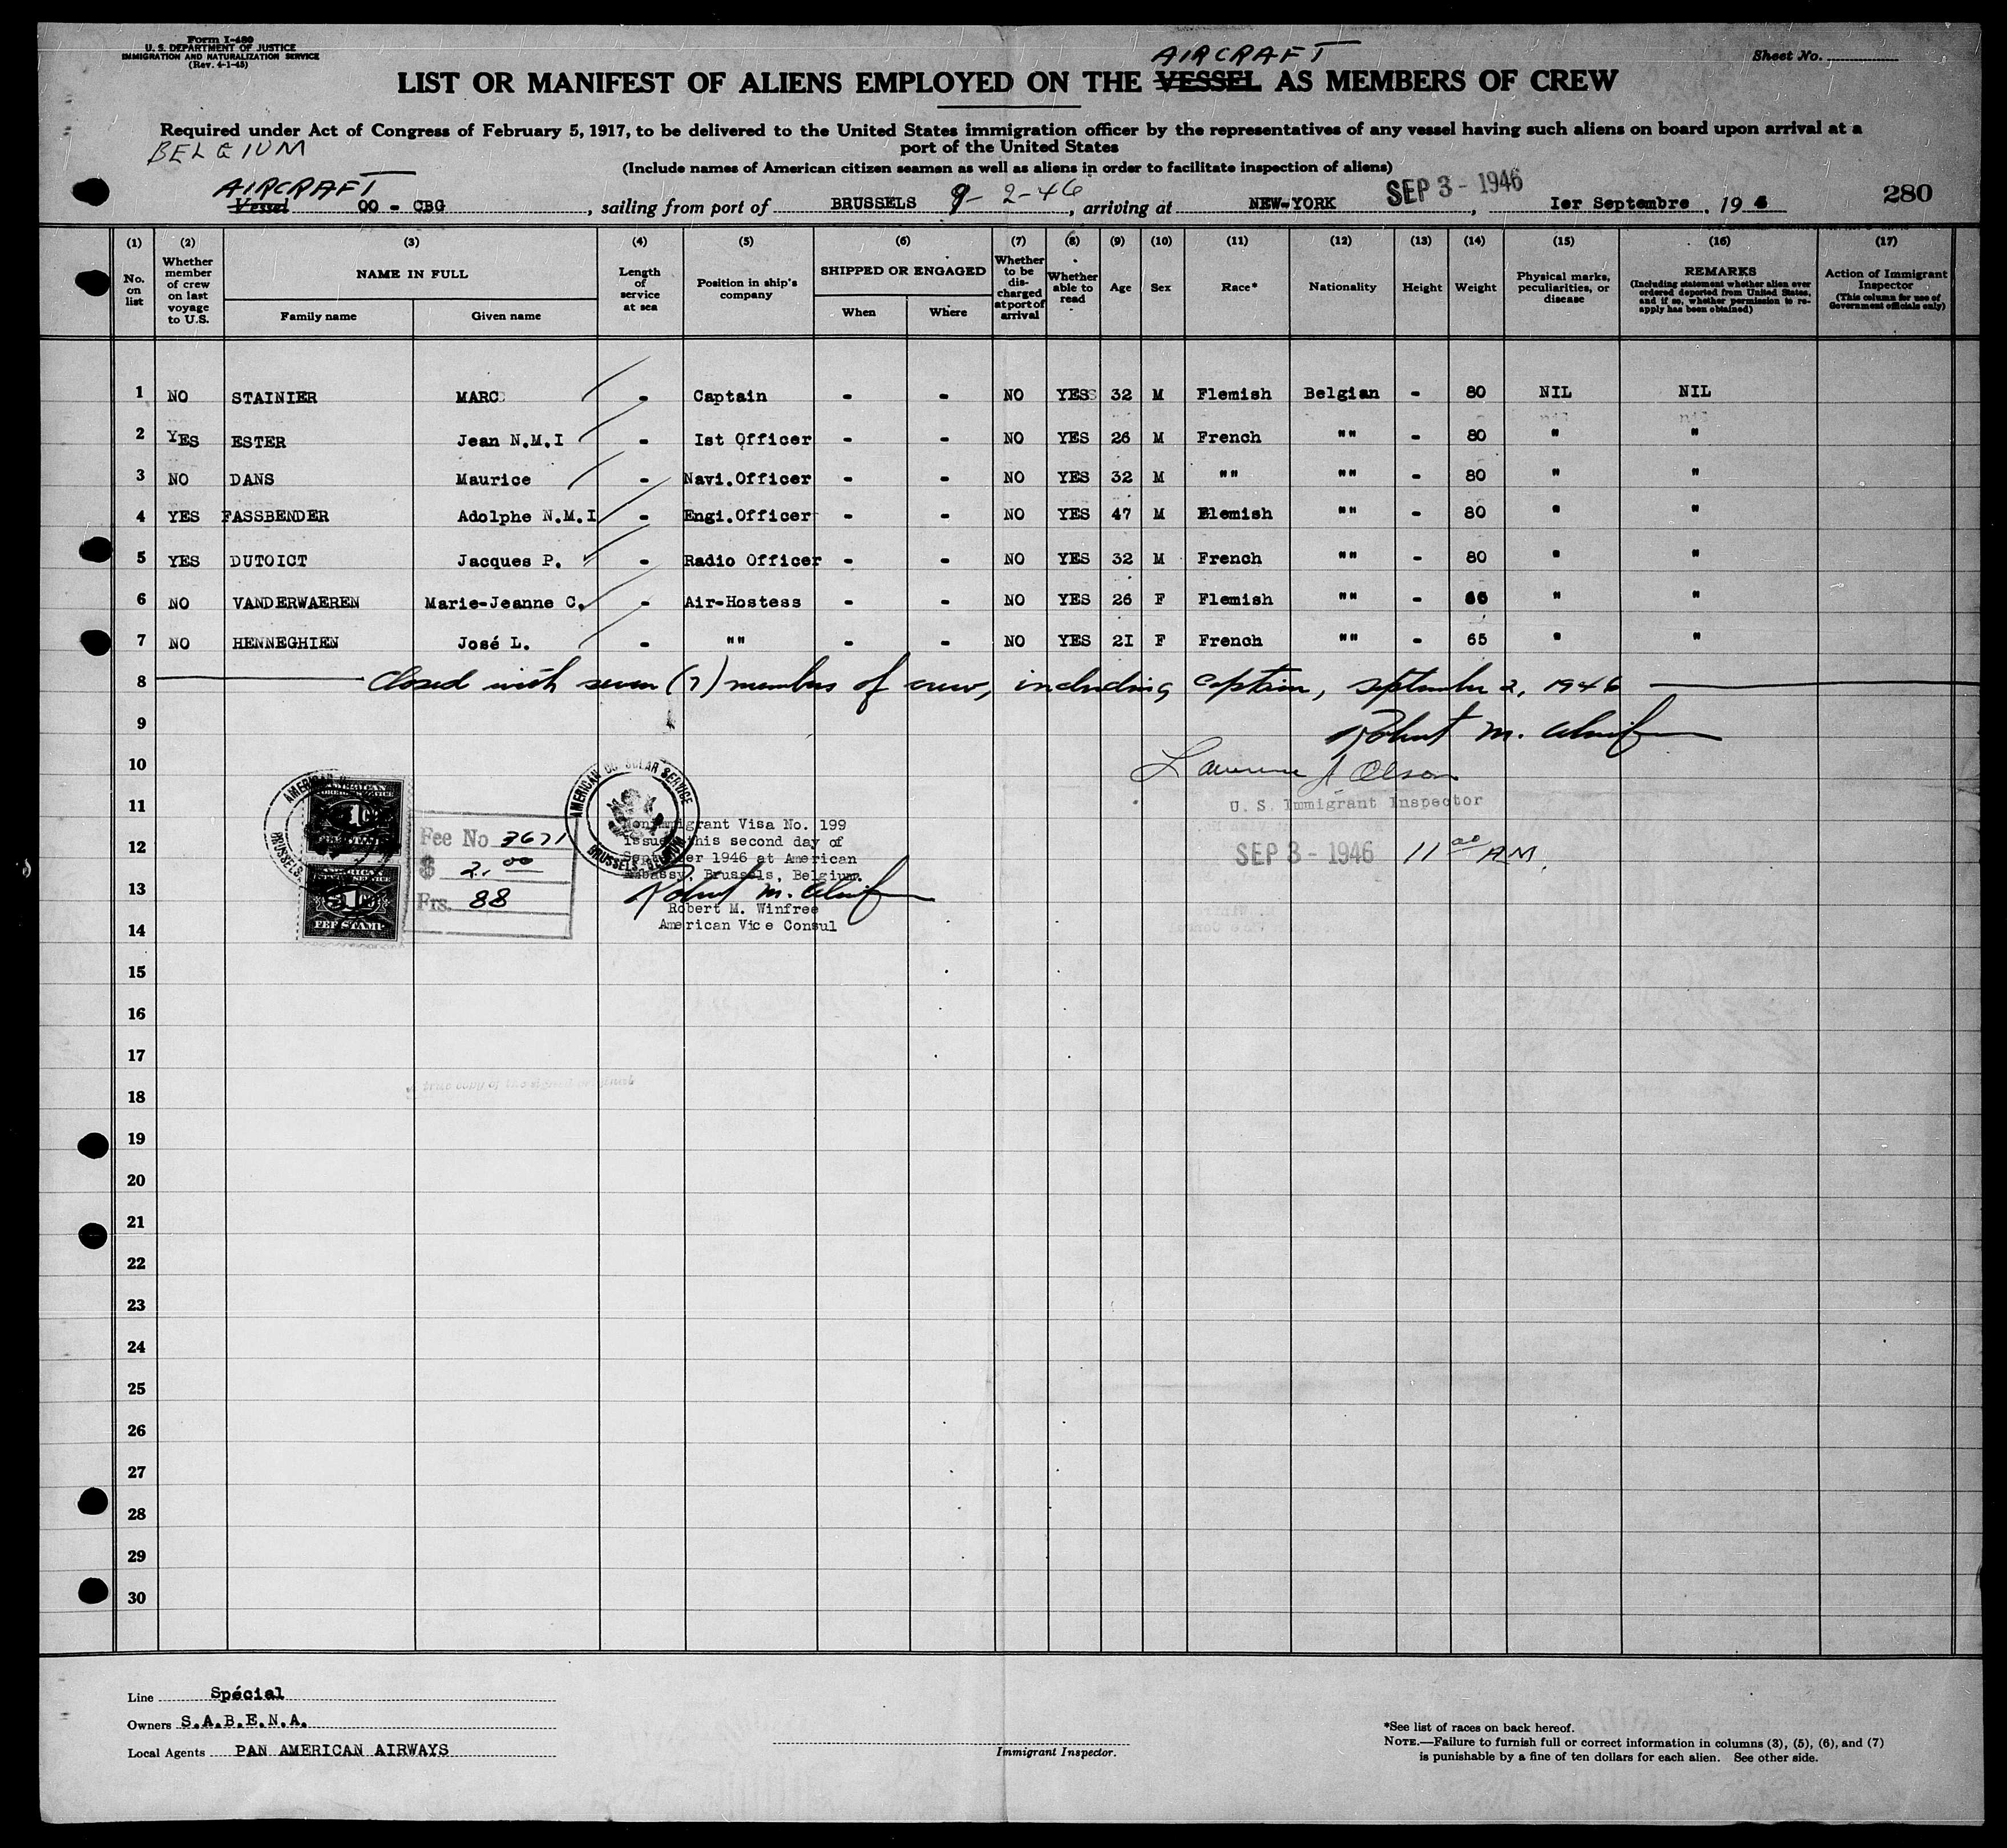 Form I-480
U. S. DEPARTMENT OF JUSTICE
IMMIGRATION AND NATURALIZATION SERVICE
(Rev. 4-1-45)
Sheet No.
AIRCRAFT
LIST OR MANIFEST OF ALIENS EMPLOYED ON THE VESSEL AS MEMBERS OF CREW
Required under Act of Congress of February 5, 1917, to be delivered to the United States immigration officer by the representatives of any vessel having such aliens on board upon arrival at a
port of the United States
BELGIUM
(Include names of American citizen seamen as well as aliens in order to facilitate inspection of aliens)
AIRCRAFT
Vessel OO - CBG, sailing from port of BRUSSELS 9-2-46, arriving at NEW-YORK SEP 3 - 1946, Ier Septembre, 194 280
(1) (2) (3) (4) (5) (6) (7) (8) (9) (10) (11) (12) (13) (14) (15) (16) (17)
No. on list
Whether member of crew on last voyage to U.S.
NAME IN FULL
Family name
Given name
Length of service at sea
Position in ship's company
SHIPPED OR ENGAGED
When
Where
Whether to be discharged at port of arrival
Whether able to read
Age
Sex
Race*
Nationality
Height
Weight
Physical marks, peculiarities, or disease
REMARKS
(Including statement whether alien ever ordered deported from United States, and if so, whether permission to reapply has been obtained)
Action of Immigrant Inspector
(This column for use of Government officials only)
1 NO STAINIER MARC - Captain - - NO YES 32 M Flemish Belgian - 80 NIL NIL
2 YES ESTER Jean N.M.I - Ist Officer - - NO YES 26 M French "" - 80 " "
3 NO DANS Maurice - Navi.Officer - - NO YES 32 M "" "" - 80 " "
4 YES FASSBENDER Adolphe N.M.I - Engi.Officer - - NO YES 47 M Flemish "" - 80 " "
5 YES DUTOICT Jacques P. - Radio Officer - - NO YES 32 M French "" - 80 " "
6 NO VANDERWAEREN Marie-Jeanne C. - Air-Hostess - - NO YES 26 F Flemish "" - " "
7 NO HENNEGHIEN José L. - "" - - NO YES 21 F French "" - 65 " "
8 Closed with seven (7) members of crew, including Captain, September 2, 1946
9 Robert M. Winfree
10 Lawrence A Olson
11 U. S. Immigrant Inspector
12 SEP 3 - 1946 11 00 AM.
13
14
15
16
17
18
19
20
21
22
23
24
25
26
27
28
29
30
AMERICAN FOREIGN SERVICE
FEE STAMP
AMERICAN FOREIGN SERVICE
$1.00
FEE STAMP
Fee No 3671
$ 2.00
Frs. 88
AMERICAN CONSULAR SERVICE
BRUSSELS, BELGIUM
Nonimmigrant Visa No. 199
issued this second day of
September 1946 at American
Embassy, Brussels, Belgium.
Robert M. Winfree
Robert M. Winfree
American Vice Consul
A true copy of the signed original
Line Spécial
Owners S.A.B.E.N.A.
Local Agents PAN AMERICAN AIRWAYS
Immigrant Inspector.
*See list of races on back hereof.
NOTE.—Failure to furnish full or correct information in columns (3), (5), (6), and (7)
is punishable by a fine of ten dollars for each alien. See other side.